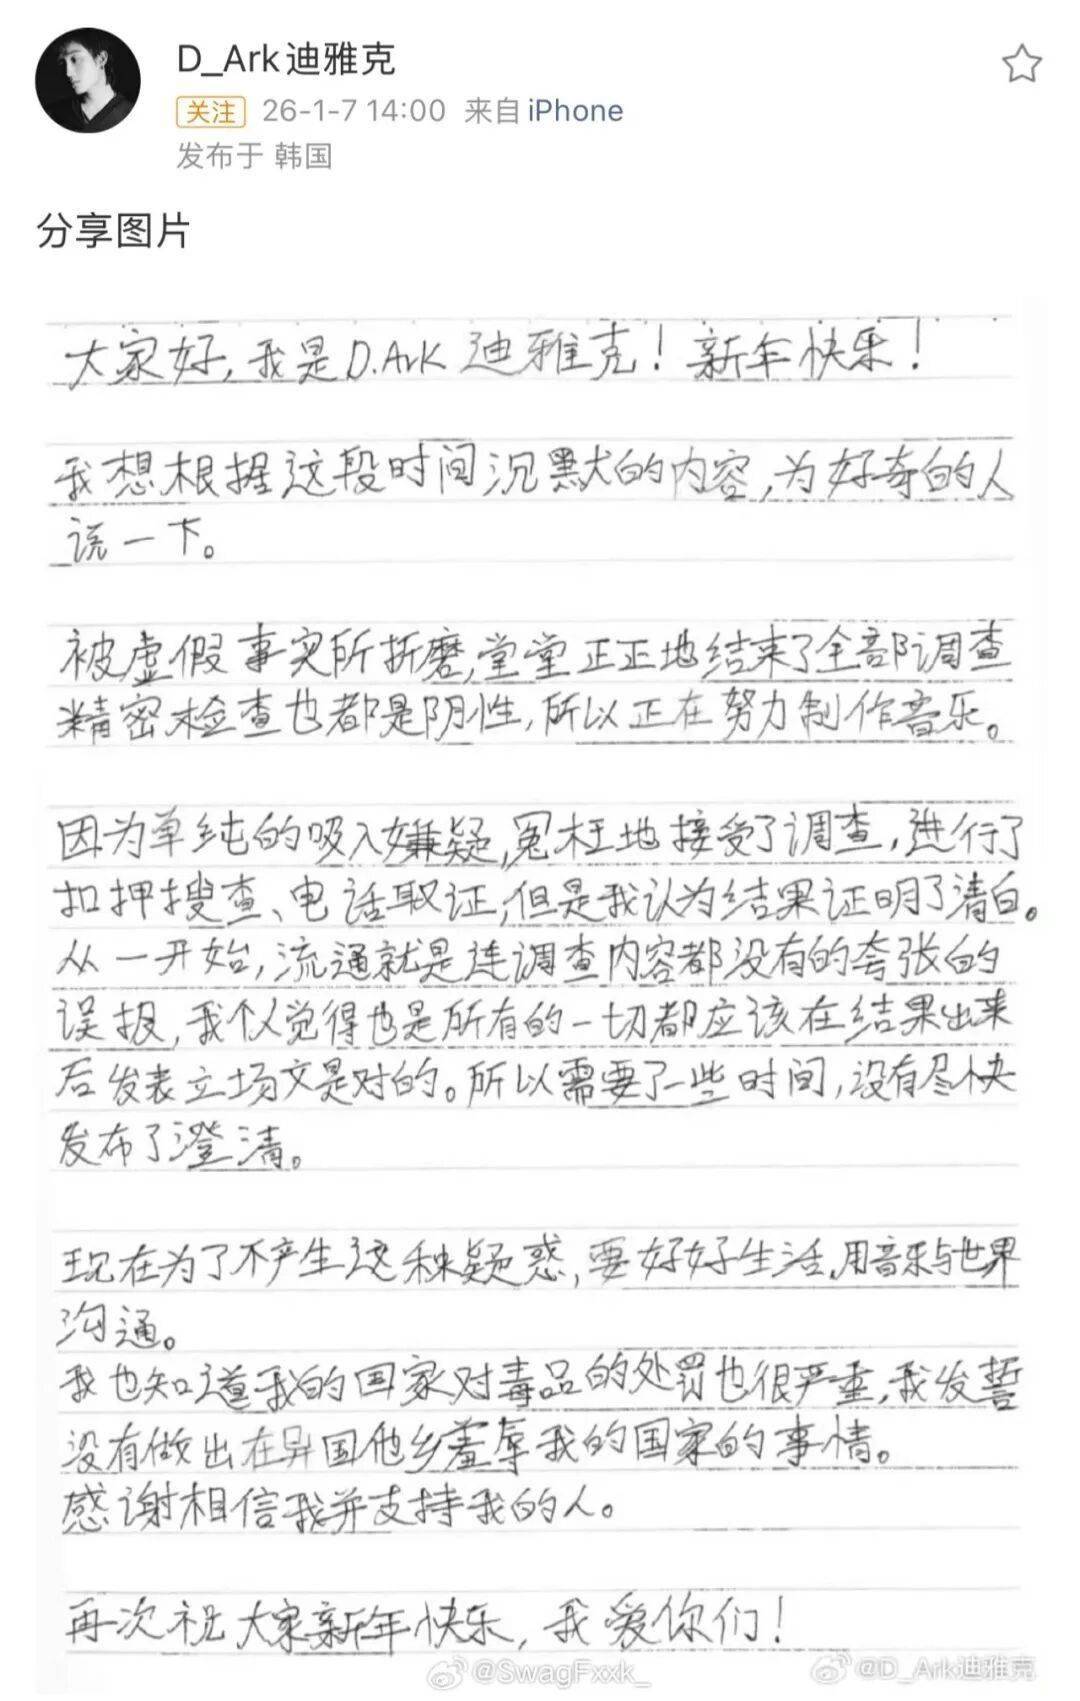 D_Ark迪雅克
关注 26-1-7 14:00 来自 iPhone
发布于 韩国
分享图片
大家好,我是D.Ark 迪雅克！新年快乐！
我想根据这段时间沉默的内容,为好奇的人
说一下。
被虚假事实所折磨,堂堂正正地结束了全部调查
精密检查也都是阴性,所以正在努力制作音乐。
因为单纯的吸入嫌疑,冤枉地接受了调查,进行了
扣押搜查、电话取证,但是我认为结果证明了清白。
从一开始,流通就是连调查内容都没有的夸张的
误报,我个人觉得也是所有的一切都应该在结果出来
后发表立场文是对的。所以需要了一些时间,没有尽快
发布了澄清。
现在为了不产生这种疑惑,要好好生活,用音乐与世界
沟通。
我也知道我的国家对毒品的处罚也很严重,我发誓
没有做出在异国他乡羞辱我的国家的事情。
感谢相信我并支持我的人。
再次祝大家新年快乐,我爱你们！
@SwagFxxk_
@D_Ark迪雅克